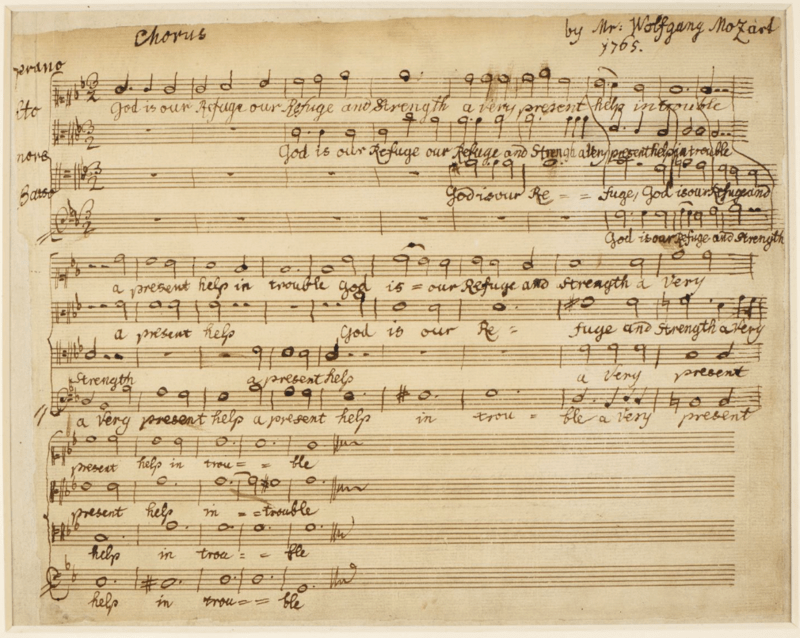 Chorus
by Mr: Wolfgang Mozart
1765.
prano
God is our Refuge our Refuge and Strength a very present help in trouble
lto
God is our Refuge our Refuge and Strength a Very present help in trouble
nore
God is our Re = = fuge, God is our Refuge and
Basso
God is our Refuge and Strength
a present help in trouble God is = our Refuge and Strength a Very
a present help God is our Re = fuge and Strength a Very
Strength a present help a Very present
a Very present help a present help in trou = ble a Very present
present help in trou = = ble
present help in = = trouble
help in trou = = ble
help in trou = = ble